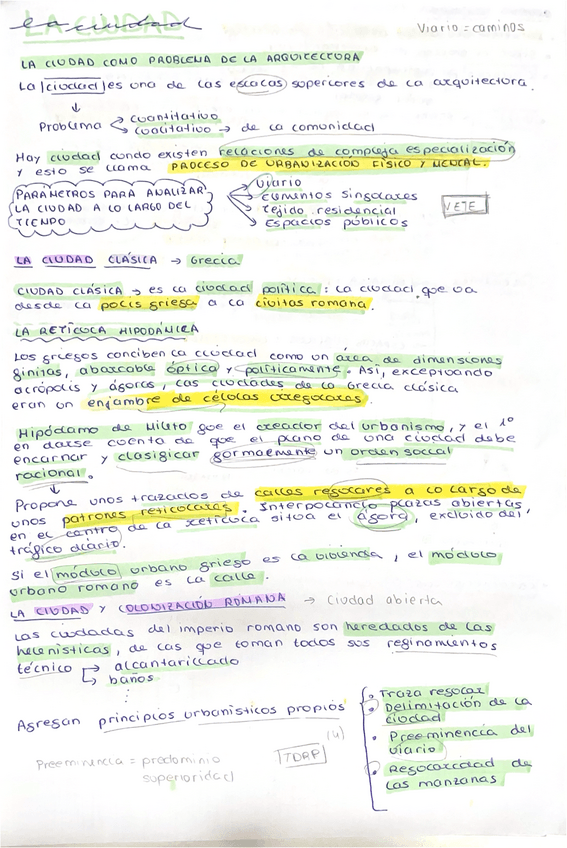 la ciudad
LA CIUDAD
Viario = caminos
LA CIUDAD COMO PROBLEMA DE LA ARQUITECTURA
La ciudad es una de las escalas superiores de la arquitectura.
↓
Problema < cuantitativo
cualitativo → de la comunidad
Hay ciudad cundo existen relaciones de compleja especialización
y esto se llama PROCESO DE URBANIZACIÓN FÍSICO Y MENTAL.
PARÁMETROS PARA ANALIZAR
LA CIUDAD A LO LARGO DEL
TIEMPO
Viario
elementos singulares
Tejido residencial
Espacios públicos
VETE
LA CIUDAD CLÁSICA → Grecia
CIUDAD CLÁSICA → es la ciudad política: la ciudad que va
desde la polis griega a la civitas romana.
LA RETÍCULA HIPODÁMICA
Los griegos conciben la ciudad como un área de dimensiones
finitas, abarcable óptica y políticamente. Así, exceptuando
acrópolis y ágoras, las ciudades de la Grecia clásica
eran un enjambre de células irregulares.
Hipódamo de Mileto fue el creador del urbanismo, y el 1º
en darse cuenta de que el plano de una ciudad debe
encarnar y clasificar formalmente un orden social
racional.
↓
Propone unos trazados de calles regulares a lo largo de
unos patrones reticulares. Interpolando plazas abiertas
en el centro de la retícula sitúa el Ágora, excluido del
tráfico diario.
Si el módulo urbano griego es la vivienda, el módulo
urbano romano es la calle.
LA CIUDAD Y COLONIZACIÓN ROMANA → Ciudad abierta
Las ciudades del imperio romano son heredados de las
helenísticas, de las que toman todos sus refinamientos
técnico → alcantarillado
→ baños
Agregan principios urbanísticos propios
(4)
TDRP
• Traza regular
• Delimitación de la
ciudad
• Preeminencia del
viario
• Regularidad de
las manzanas
Preeminencia = predominio
superioridad